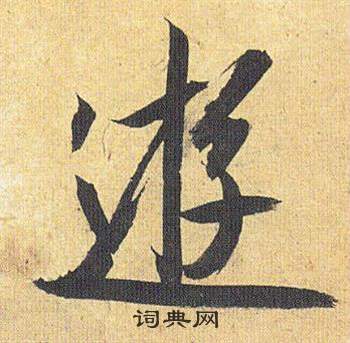 遊
词典网